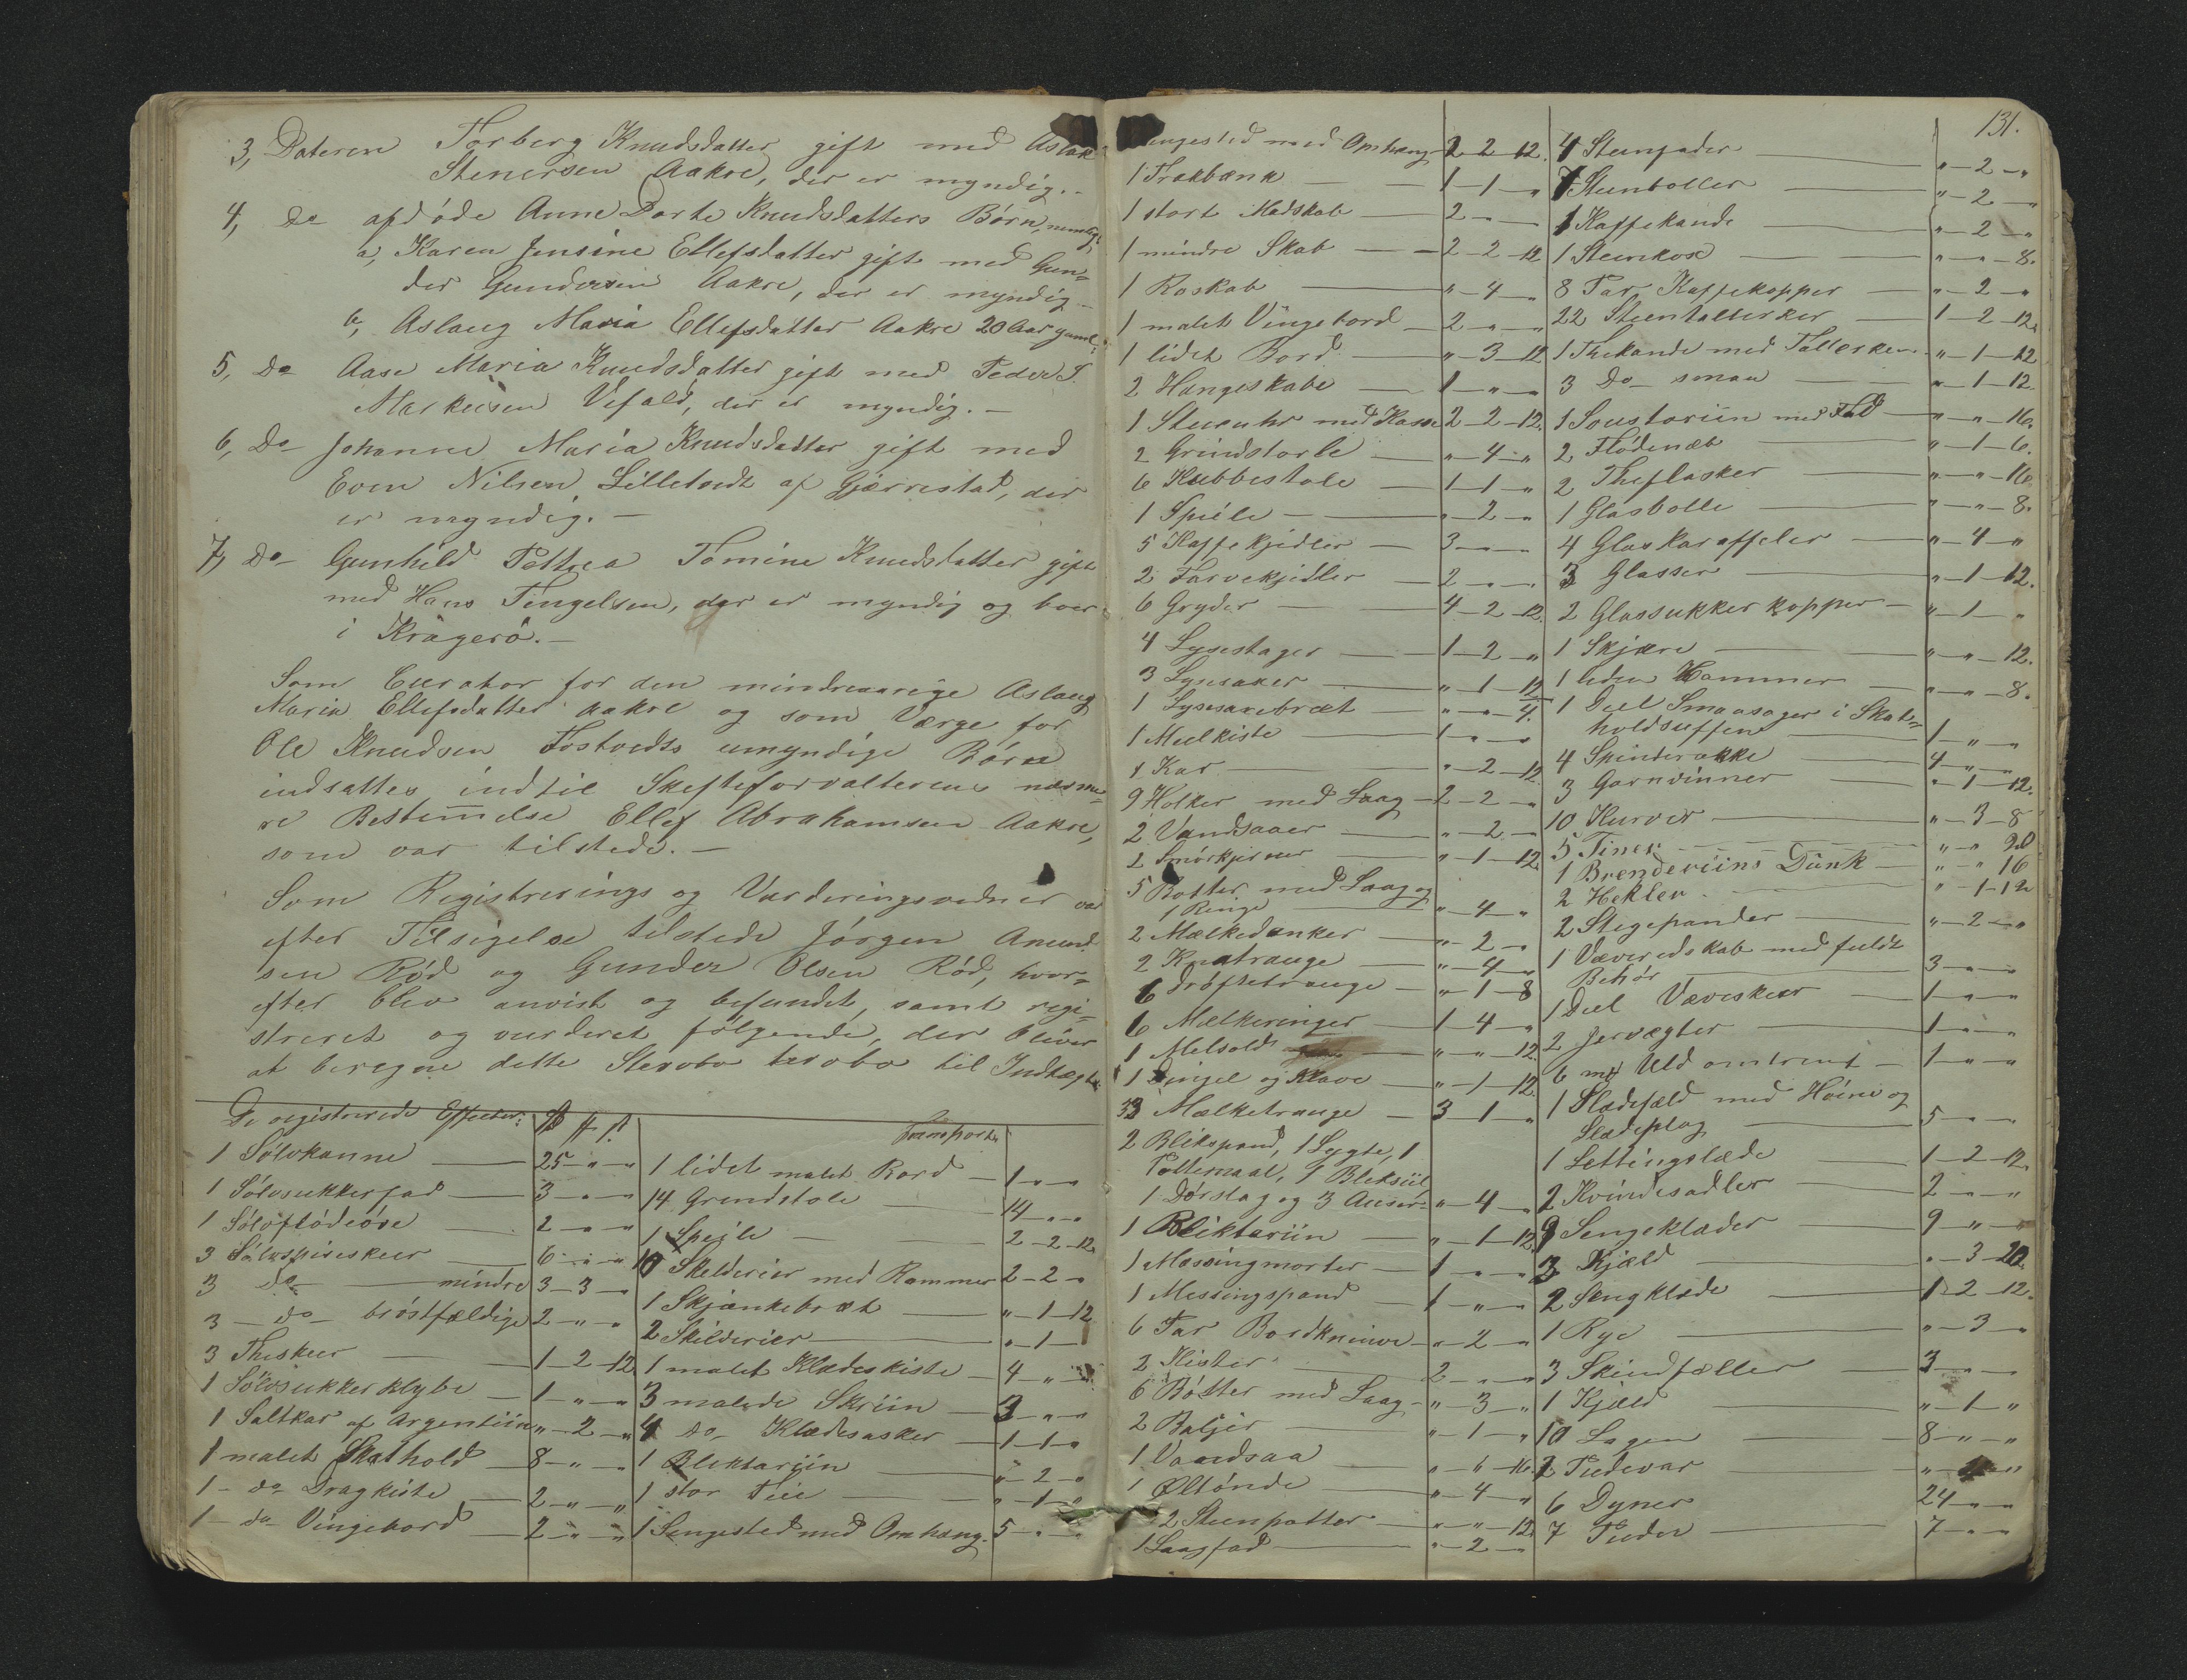 3, Dateren Torberg Knudsdatter gift med Aslak
Stenersen Aakre, der er myndig. -
4, Do afdöde Anne Dorte Knudsdatters Børn, nemlig:
a, Karen Jensine Ellefsdatter gift med Gun=
der Gundersen Aakre, der er myndig -
b, Aslaug Maria Ellefsdatter Aakre 20 Aar gaml:
5, Do Aase Maria Knudsdatter gift med Peder T.
Markusen Vefald, der er myndig. -
6, Do Johanne Maria Knudsdatter gift med
Even Nilsen Lilletvedt af Gjerrestad, der
er myndig. -
7, Do Gunhild Pettrea Tomine Knudsdatter gift
med Hans Tingelsen, der er myndig og boer
i Krágerö. -
Som Curator for den mindreaarige Aslaug
Maria Ellefsdatter Aakre og som Værge for
Ole Knudsen Tostvedts umyndige Børn
indsattes indtil Skifteforvalterens nærme=
re Bestemmelse Ellef Abrahamsen Aakre,
som var tilstede. -
Som Registrerings og Vurderingsvidner var
efter Tilsigelse tilstede Jörgen Amund
sen Röd og Gunder Olsen Röd, hvor=
efter blev anvist og befundet, samt regi=
streret og vurderet fölgende, der bliver
at beregne dette Stervbo til Indtægt
De registrerede Effecter:
1 Sölvkanne 25 - " - "
1 Sölvsukkerfad 3 - " - "
1 Sölvflödeöse 2 - " - "
3 Sölvspiseskeer 6 - " - "
3 do mindre 3 - 3 - "
3 - do - bröstfældige 2 - " - "
3 Theskeer 1 - 2 - 12
1 Sölvsukkerklybe 1 - " - "
1 Saltkar af Argentiin " - 2 - "
1 malet Skathold 8 - " - "
1 - do Dragkiste 2 - " - "
1 - do Vingebord 2 - " - "
Transport
1 lidet malet Bord 1 - " - "
14 Grindstole 14 - " - "
1 Speile 2 - 2 - 12
10 Skilderier med Rammer 2 - 2 - "
1 Skjænkebræt " - 1 - 12
2 Skilderier " - 1 - "
1 malet Klædeskiste 4 - " - "
3 malede Skriin 3 - " - "
4 do Klædesasker 1 - 1 - "
1 Bliktariin " - 2 - "
1 stor Tiie " - 1 - "
1 Sengested med Omhæng. 5 - " - "
131.
Sengested med Omhæng 2 - 2 - 12.
1 Trækbænk 1 - 1 - "
1 stort Madskab 2 - " - "
1 mindre Skab 2 - 2 - 12
1 Roskab " - 4 - "
1 malet Vingebord 2 - " - "
1 lidet Bord " - 3 - 12
2 Hængeskabe 1 - " - "
1 Stueuhr med Kasse 2 - 2 - 12.
2 Grindstole " - 4 - "
6 Kubbestole 1 - 1 - "
1 Speile " - 2 - "
5 Kaffekjedler 3 - " - "
2 Farvekjedler 2 - " - "
6 Gryder 4 - 2 - 12.
4 Lysestager 1 - 2 - "
3 Lysesaxer " - 1 - 12
1 Lysesaxebræt " - " - 4.
1 Meelkiste 1 - " - "
4 Kar " - 2 - 12
9 Holker med Laag 2 - 2 - "
2 Vandsaaer " - 2 - "
2 Smörkjerner " - 1 - 12.
5 Bøtter med Laag og
1 Ringe " - 4 - "
2 Mælkedunker " - 2 - "
2 Knatrauge " - 4 - "
6 Dröftetrauge " - 1 - 8
6 Mælkeringer 1 - 4 - "
1 Melsold " - " - 12
1 Dinjel og Klave " - 1 - 12.
33 Mælketrauge 3 - 1 - "
2 Blikspand, 1 Lygte, 1
Pottemaal, 1 Bliksiil
1 Dörslag og 3 Auser " - 4 - "
1 Bliktariin " - 1 - 12
1 Messingmorter 1 - " - "
1 Messingspand 1 - " - "
6 Par Bordkniver " - 2 - "
2 Kister 2 - " - "
6 Bötter med Laag " - 3 - "
2 Baljer " - 1 - "
1 Vandsaa " - " - 16
1 Øltönde " - 4 - "
2 Steenpotter " - " - 12
1 Laagfad " - 2 - "
4 Steenfader " - 2 - "
7 Steenboller " - 2 - "
1 Kaffekande " - 2 - "
1 Steenkop " - " - 8.
8 Par Kaffekopper " - 2 - "
22 Steentallerker 1 - 2 - 12.
1 Thekande med Tallerken " - 1 - 12
3 Do smaa " - 1 - 12.
1 Soustariin med Fad " - " - 16.
2 Flödenæb " - 1 - 6.
2 Theflasker " - " - 16
1 Glasbolle " - " - 8.
4 Glaskaraffeler " - 4 - "
3 Glasser " - 1 - 12.
2 Glassukkerkopper " - 1 - "
1 Skjære " - " - 12.
1 liden Hammer " - " - 8.
1 Deel Smaasager i Skat=
holdsuffen 1 - " - "
4 Spinderokke 4 - " - "
3 Garnvinner " - 1 - 12.
10 Kurver " - 3 - 8
5 Tiner " " 20
1 Brenderiins Dunk " " 16
2 Hekler " - 1 - 12
2 Stegepander " - 2 - "
1 Væveredskab med fuldt
Behör 3 - " - "
1 Deel Væveskeer 1 - " - "
2 Jervægter 1 - " - "
6 mk Uld omtrent 1 - " - "
1 Slædefæld med Höine og
Slædeplag 5 - " - "
1 Lettingslæde 1 - 2 - 12.
2 Kvindesadler 2 - " - "
9 Sengeklæder 9 - " - "
3 Kjæld " - 3 - 20.
2 Sengklæde 1 - 2 - 12.
1 Rye " - 3 - "
3 Skindfæller 3 - " - "
1 Kjæld " - 1 - "
10 Lagen 8 - " - "
2 Pudevar
6 Dyner 24 - " - "
7 Puder 7 - " - "